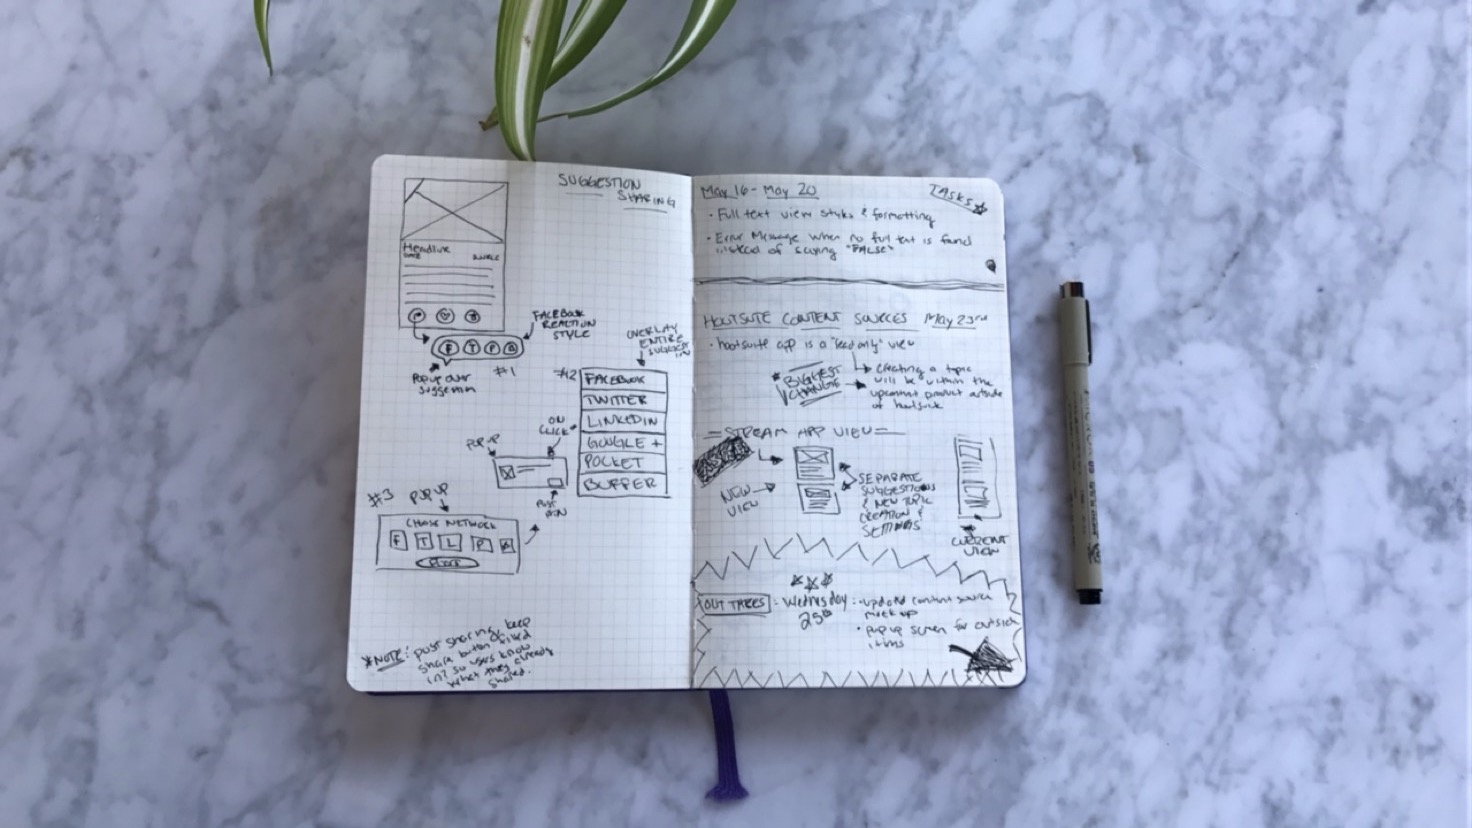 SUGGESTION
SHARING
Headline
SOURCE
FACEBOOK
REACTION
STYLE
F T P
POPUP OVER
SUGGESTION
#1
OVERLAY
ENTIRE
#2
FACEBOOK
TWITTER
LINKEDIN
GOOGLE +
POCKET
BUFFER
ON
CLICK
POPUP
POST
BTN
#3 POPUP
CHOSE NETWORK
F T L P B
*NOTE: post sharing, keep
share button filled
in? so users know
what they already
shared.
May 16 - May 20
TASKS
• Full text view styles & formatting
• Error Message when no full text is found
instead of saying "FALSE"
HOOTSUITE CONTENT SOURCES May 23rd
• hootsuite app is a "read only" view
* BIGGEST
CHANGE
creating a topic
will be within the
upcontent product outside
of hootsuite
STREAM APP VIEW
NEW
VIEW
SEPARATE
SUGGESTIONS
& NEW TOPIC
CREATION &
SETTINGS
CURRENT
VIEW
: Wednesday
25th
• updated content source
mockup
• popup screen for outside
items